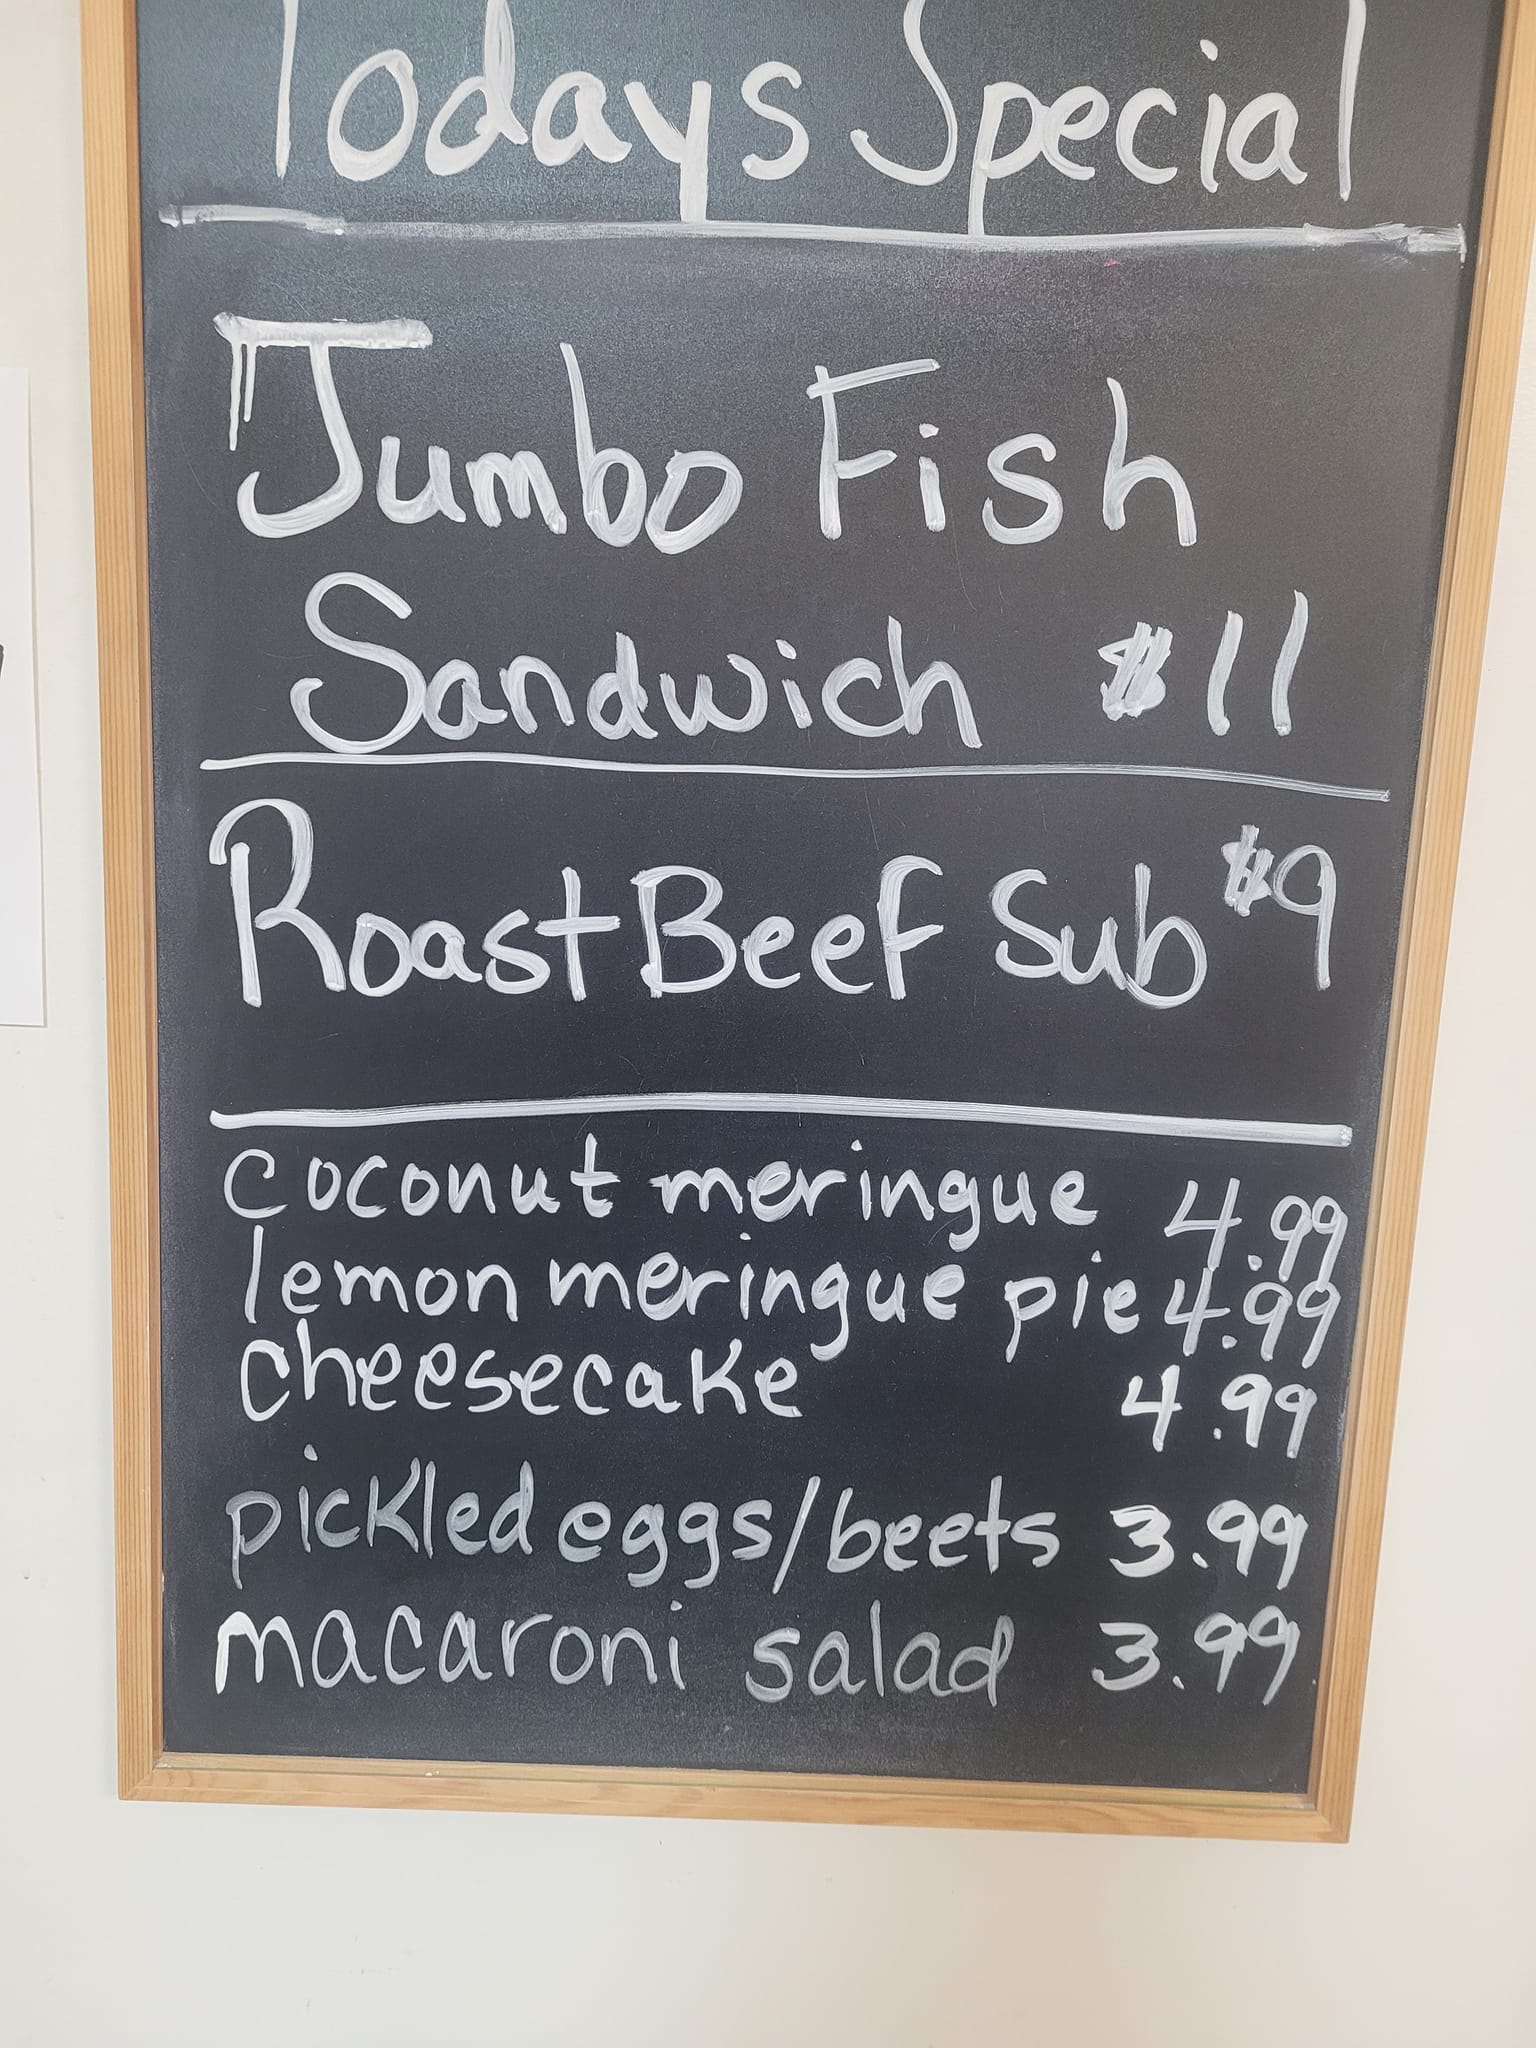 Todays Special
Jumbo Fish
Sandwich $11
Roast Beef Sub $9
coconut meringue 4.99
lemon meringue pie 4.99
cheesecake 4.99
pickled eggs/beets 3.99
macaroni salad 3.99